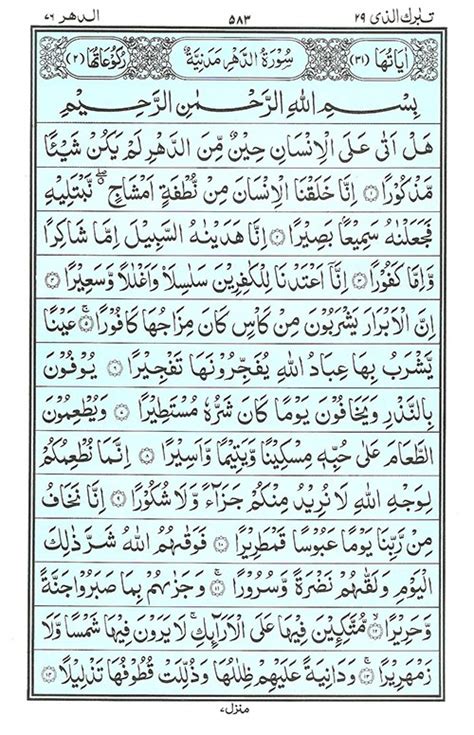 تبٰرك الذي ٢٩ ٥٨٣ الدهر ٧٦
اٰيَاتُهَا (٣١) سُوْرَةُ الدَّهْرِ مَدَنِيَّةٌ رُكُوْعَاتُهَا (٢)
بِسْمِ اللّٰهِ الرَّحْمٰنِ الرَّحِيْمِ
هَلْ اَتٰى عَلَى الْاِنْسَانِ حِيْنٌ مِّنَ الدَّهْرِ لَمْ يَكُنْ شَيْـًٔا
مَّذْكُوْرًا ۝١ اِنَّا خَلَقْنَا الْاِنْسَانَ مِنْ نُّطْفَةٍ اَمْشَاجٍ ۖ نَّبْتَلِيْهِ
فَجَعَلْنٰهُ سَمِيْعًۢا بَصِيْرًا ۝٢ اِنَّا هَدَيْنٰهُ السَّبِيْلَ اِمَّا شَاكِرًا
وَّاِمَّا كَفُوْرًا ۝٣ اِنَّآ اَعْتَدْنَا لِلْكٰفِرِيْنَ سَلٰسِلَا۟ وَاَغْلٰلًا وَّسَعِيْرًا ۝٤
اِنَّ الْاَبْرَارَ يَشْرَبُوْنَ مِنْ كَاْسٍ كَانَ مِزَاجُهَا كَافُوْرًا ۝٥ۚ عَيْنًا
يَّشْرَبُ بِهَا عِبَادُ اللّٰهِ يُفَجِّرُوْنَهَا تَفْجِيْرًا ۝٦ يُوْفُوْنَ
بِالنَّذْرِ وَيَخَافُوْنَ يَوْمًا كَانَ شَرُّهٗ مُسْتَطِيْرًا ۝٧ وَيُطْعِمُوْنَ
الطَّعَامَ عَلٰى حُبِّهٖ مِسْكِيْنًا وَّيَتِيْمًا وَّاَسِيْرًا ۝٨ اِنَّمَا نُطْعِمُكُمْ
لِوَجْهِ اللّٰهِ لَا نُرِيْدُ مِنْكُمْ جَزَآءً وَّلَا شُكُوْرًا ۝٩ اِنَّا نَخَافُ
مِنْ رَّبِّنَا يَوْمًا عَبُوْسًا قَمْطَرِيْرًا ۝١٠ فَوَقٰىهُمُ اللّٰهُ شَرَّ ذٰلِكَ
الْيَوْمِ وَلَقّٰىهُمْ نَضْرَةً وَّسُرُوْرًا ۝١١ۚ وَجَزٰىهُمْ بِمَا صَبَرُوْا جَنَّةً
وَّحَرِيْرًا ۝١٢ مُّتَّكِـِٕيْنَ فِيْهَا عَلَى الْاَرَآئِكِ ۚ لَا يَرَوْنَ فِيْهَا شَمْسًا وَّلَا
زَمْهَرِيْرًا ۝١٣ۚ وَدَانِيَةً عَلَيْهِمْ ظِلٰلُهَا وَذُلِّلَتْ قُطُوْفُهَا تَذْلِيْلًا ۝١٤
منزل ٧